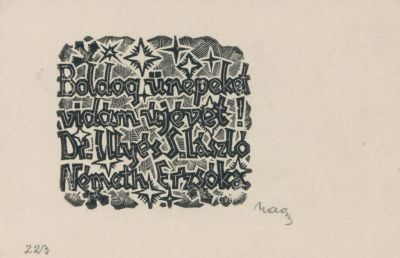 Boldog ünnepeket
vidám újévet!
Dr. Illyés S. László
Németh Erzsóka
223